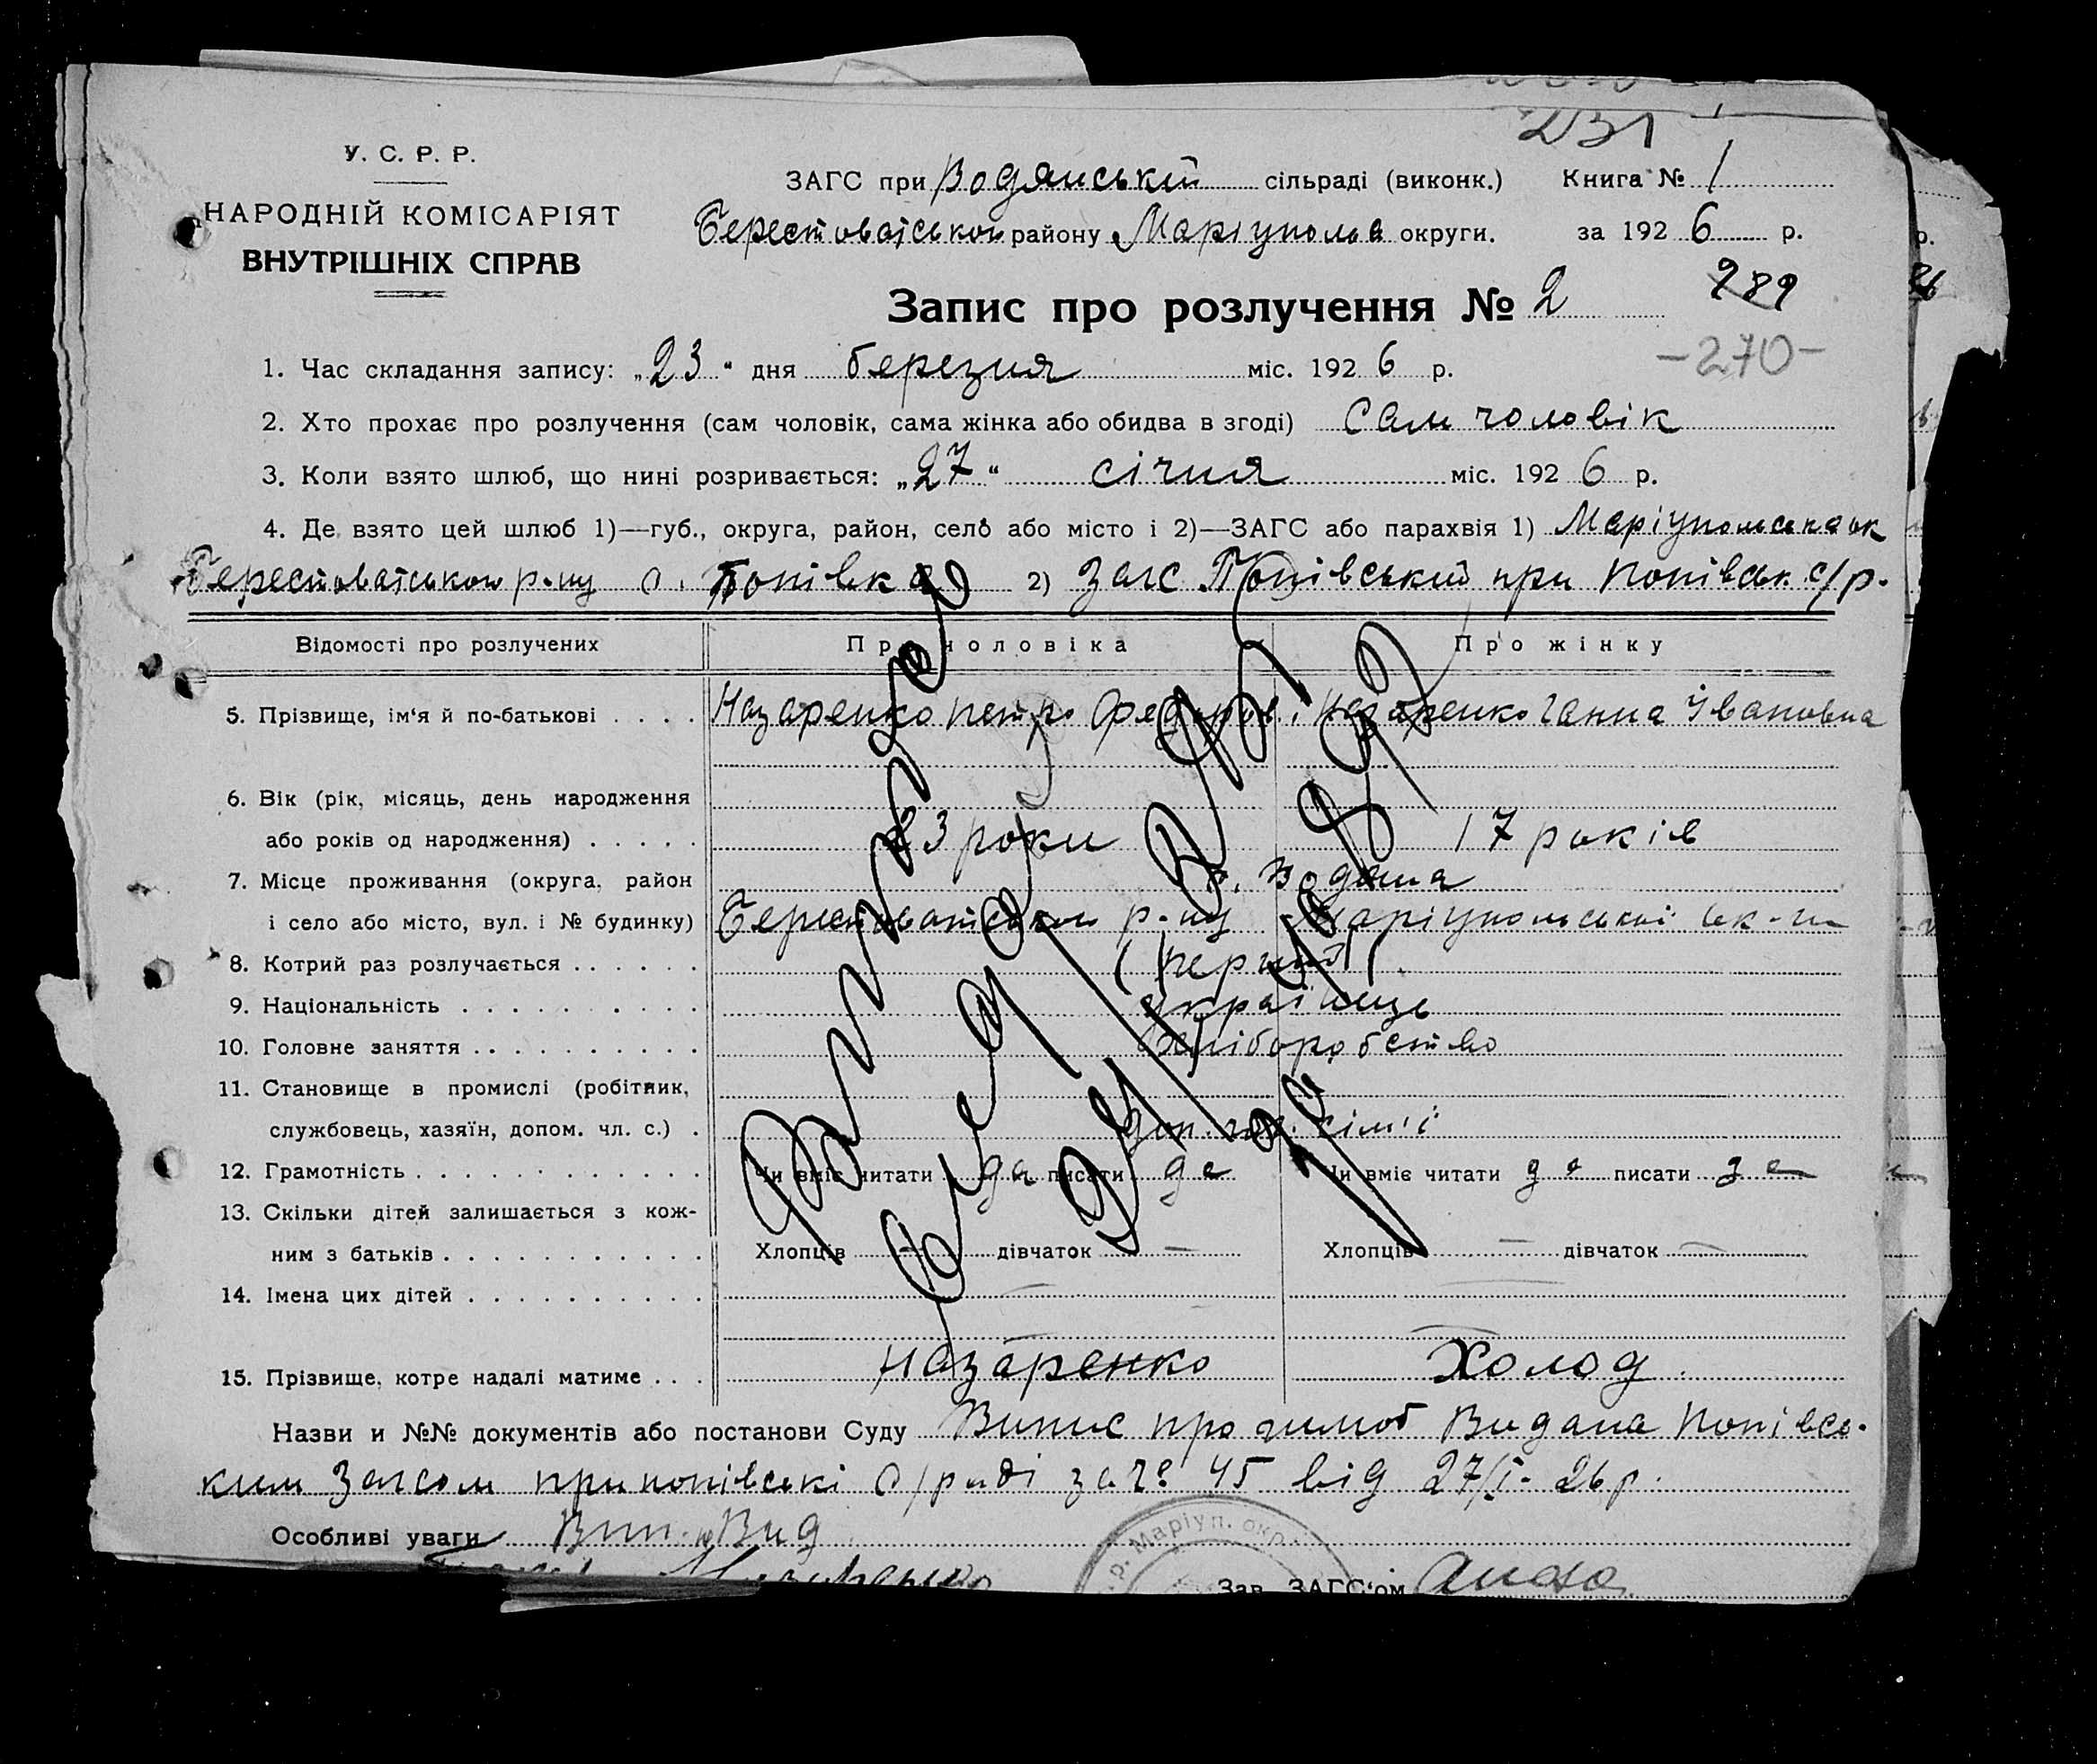 231
У. С. Р. Р.
НАРОДНІЙ КОМІСАРІЯТ
ВНУТРІШНІХ СПРАВ
ЗАГС при Водянській сільраді (виконк.) Книга № 1
Берестоватського району Маріуполь округи. за 1926 р.
Запис про розлучення № 2 289
-270-
1. Час складання запису: „23“ дня березня міс. 1926 р.
2. Хто прохає про розлучення (сам чоловік, сама жінка або обидва в згоді) Сам чоловік
3. Коли взято шлюб, що нині розривається: „27“ січня міс. 1926 р.
4. Де взято цей шлюб 1)—губ., округа, район, село або місто і 2)—ЗАГС або парахвія 1) Маріупольська ок
Берестоватського р-ну с. Попівка 2) Загс Попівський при Попівськ с/р.
Відомості про розлучених Про чоловіка Про жінку
5. Прізвище, ім‘я й по-батькові . . . . Назаренко Петро Федоров. Назаренко Ганна Івановна
6. Вік (рік, місяць, день народження
або років од народження) . . . . . 23 роки 17 років
7. Місце проживання (округа, район с. Водяна
і село або місто, вул. і № будинку) Берестоватського р-ну Маріупольської ок-ги
8. Котрий раз розлучається . . . . . . (перший)
9. Національність . . . . . . . . . . українець
10. Головне заняття . . . . . . . . . . хліборобство
11. Становище в промислі (робітник,
службовець, хазяїн, допом. чл. с.) . доп. чл. сім'ї
12. Грамотність . . . . . . . . . . . . Чи вміє читати да писати да Чи вміє читати да писати да
13. Скільки дітей залишається з кож-
ним з батьків . . . . . . . . . . . Хлопців — дівчаток — Хлопців — дівчаток —
14. Імена цих дітей . . . . . . . . . .
15. Прізвище, котре надалі матиме . . . Назаренко Холод.
Назви и №№ документів або постанови Суду Випис про шлюб Видана Попівсь-
ким Загсом при попівські с/раді за № 45 від 27/I-26 р.
Особливі уваги Вип. Вид
Назаренко р. Маріуп. окр. Зав. ЗАГС‘ом